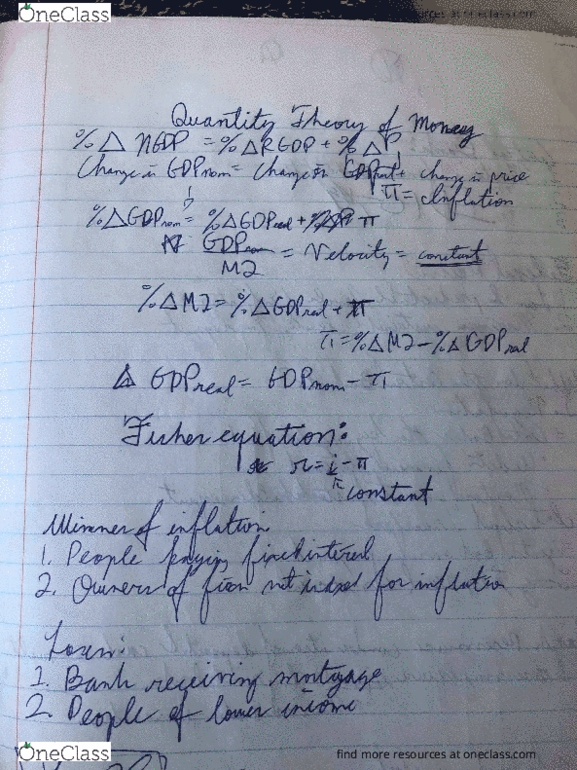 OneClass
resources at oneclass.com
Quantity Theory of Money
%Δ NGDP = %Δ RGDP + %ΔP
Change in GDPnom = Change in GDPreal + change in price
π = Inflation
%ΔGDPnom = %ΔGDPreal + π
GDPnom / M2 = Velocity = constant
%ΔM2 = %ΔGDPreal + π
π = %ΔM2 - %ΔGDPreal
Δ GDPreal = GDPnom - π
Fisher equation:
r = i - π
constant
Winner of inflation
1. People paying fixed interest
2. Owners of firm not indxd for inflation
1. Bank receiving mortgage
2. People of lower income
OneClass
find more resources at oneclass.com